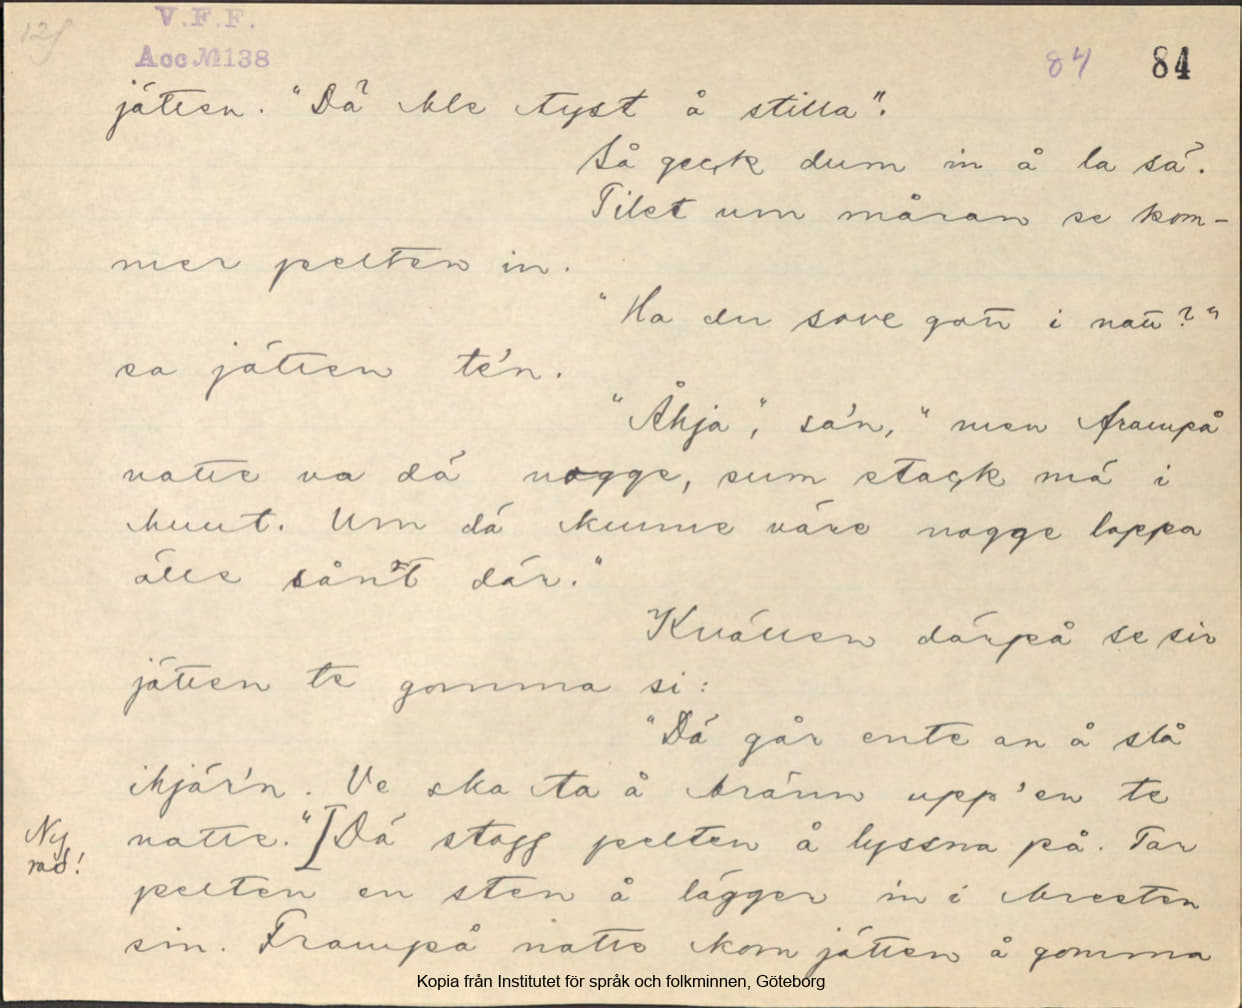 V.F.F.
Acc № 138
84 84
jätten. "Dä ble tyst å stilla".
Så geck dum in å la sä.
Tilet um måran se kom-
mer pelten in.
"Ha du sove gott i natt?"
sa jätten te'n.
"Åhja", sa'n, "men frampå
natte va dä nogge, sum stack mä i
huut. Um dä kunne väre nogge loppa
älle sånt där."
Kvällen därpå se sir
jätten te gomma si:
"Dä går ente an å slå
ihjär'n. Ve ska ta å bränn upp'en te
natte." [Dä stogg pelten å lyssna på. Tar
Ny
rad!
pelten en sten å lägger in i bresten
sin. Frampå natte kom jätten å gomma
Kopia från Institutet för språk och folkminnen, Göteborg